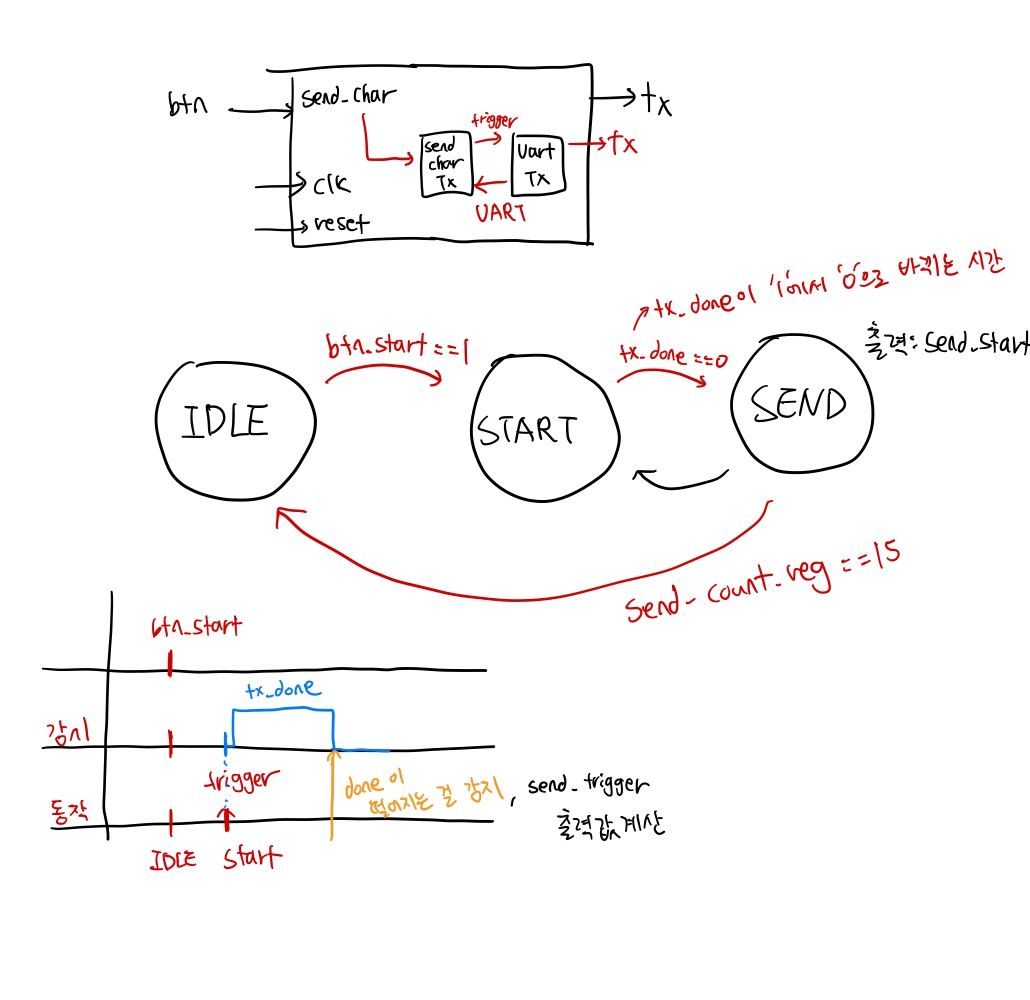 btn
send_char
tx
trigger
send
char
Tx
Uart
TX
tx
UART
clk
reset
tx_done이 '1'에서 '0'으로 바뀌는 시간
btn_start==1
tx_done==0
출력: send_start
IDLE
START
SEND
send_count_reg==15
btn_start
tx_done
감시
trigger
done이
떨어지는 걸 감지, send_trigger
출력값 계산
동작
IDLE
start